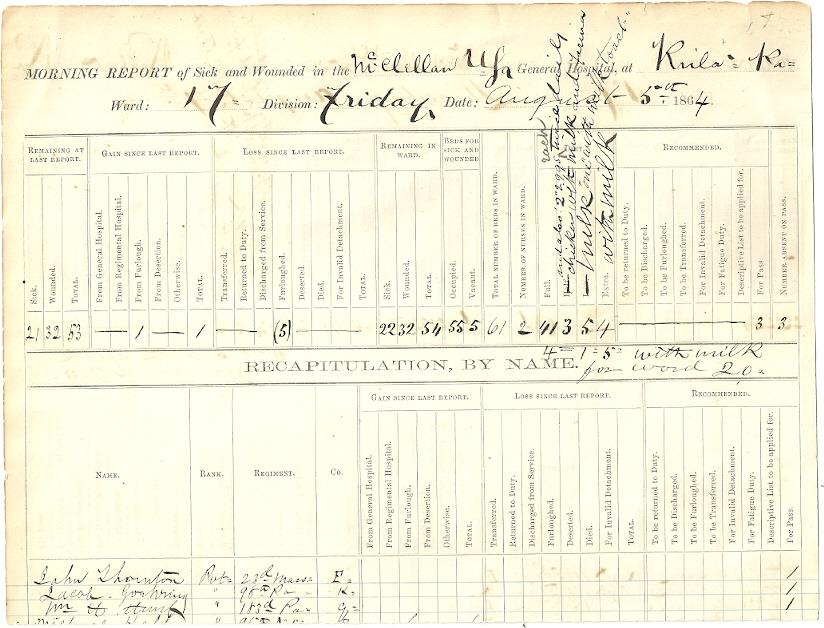 MORNING REPORT of Sick and Wounded in the McClellan U.S. General Hospital, at Phila= Pa=
Ward: 17= Division: Friday Date: August 5th 1864.
REMAINING AT LAST REPORT. GAIN SINCE LAST REPORT. LOSS SINCE LAST REPORT. REMAINING IN WARD. BEDS FOR SICK AND WOUNDED RECOMMENDED.
Sick. Wounded. TOTAL. From General Hospital. From Regimental Hospital. From Furlough. From Desertion. Otherwise. TOTAL. Transferred. Returned to Duty. Discharged from Service. Furloughed. Deserted. Died. For Invalid Detachment. TOTAL. Sick. Wounded. TOTAL. Occupied. Vacant. TOTAL NUMBER OF BEDS IN WARD. NUMBER OF NURSES IN WARD. Full. Extra. To be returned to Duty. To be Discharged. To be Furloughed. To be Transferred. For Invalid Detachment. For Fatigue Duty. Descriptive List to be applied for. For Pass NUMBER ABSENT ON PASS.
with milk
21 32 53 — 1 — 1 — (5) — 22 32 54 55 5 61 2 41 3 5 4 — 3 3
4= 1= 5= with milk
RECAPITULATION, BY NAME. for ward 20=
GAIN SINCE LAST REPORT. LOSS SINCE LAST REPORT. RECOMMENDED.
NAME. RANK. REGIMENT. Co. From General Hospital. From Regimental Hospital. From Furlough. From Desertion. Otherwise. TOTAL. Transferred. Returned to Duty. Discharged from Service. Furloughed. Deserted. Died. For Invalid Detachment. TOTAL. To be returned to Duty. To be Discharged. To be Furloughed. To be Transferred. For Invalid Detachment. For Fatigue Duty. Descriptive List to be applied for. For Pass.
John Thornton 23d Mass= F= 1
Jacob 98th Pa= K= 1
Wm H 183d Pa= G= 1